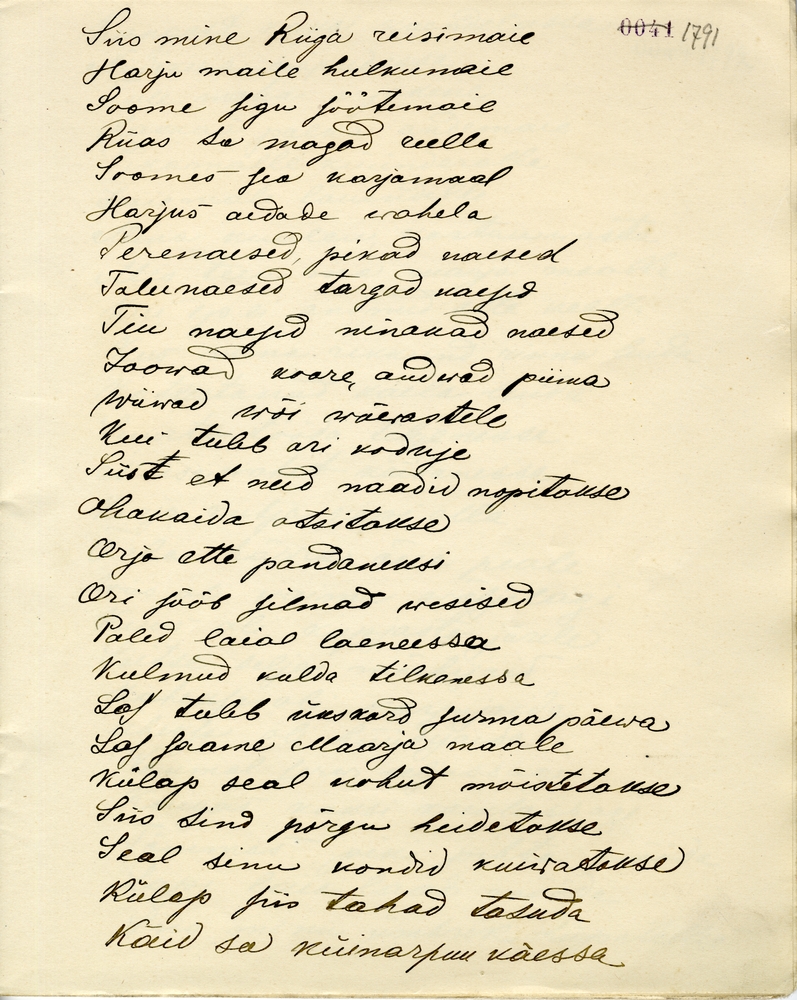 0041 1791
Siis mine Riiga reisimaie
Harju maile hulkumaie
Soome sigu söötemaie
Riias sa magad reella
Soomes sea karjamaal
Harjus aedade wahela
Perenaesed, pikad naesed
Talunaesed targad naesed
Tiu naesed ninakad naesed
Joowad koore, andwad piima
Wiiwad wõi wäewastele
Kui tuleb ori koduje
Siist et neid naadid nopitakse
Ohakaida otsitakse
Orja ette pandaneksi
Ori sööb silmad wesised
Paled laial laeneessa
Kulmud kulda tilkenessa
Las tuleb ükskord surma päewa
Las saame Maarja maale
Külap seal kohut mõistetakse
Siis sind põrgu heidetakse
Seal sinu kondid kuiwatakse
Külap siis tahad tasuda
Käid sa küinarpuu käessa